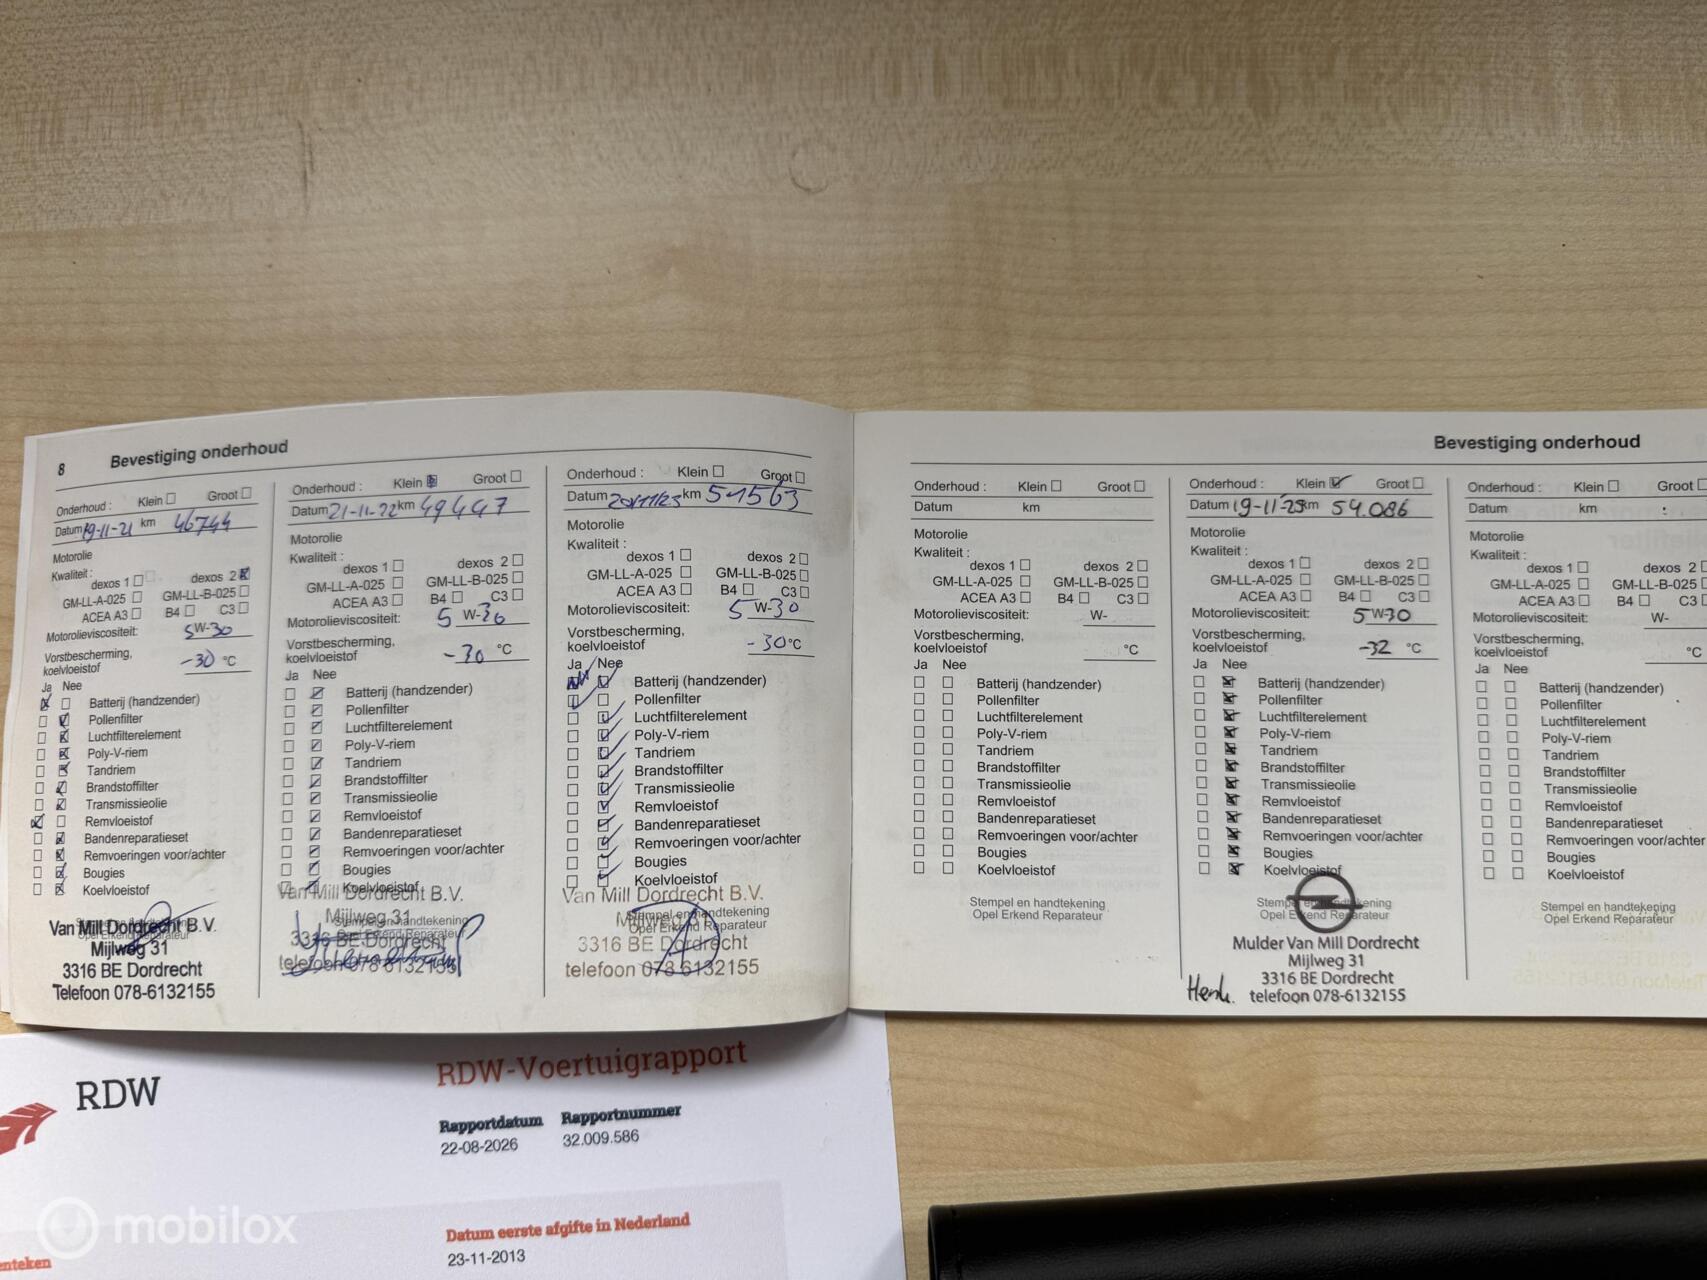 8 Bevestiging onderhoud
Onderhoud : Klein Groot
Datum 19-11-21 km 46744
Motorolie
Kwaliteit :
dexos 1 dexos 2
GM-LL-A-025 GM-LL-B-025
ACEA A3 B4 C3
Motorolieviscositeit: 5W-30
Vorstbescherming,
koelvloeistof -30 °C
Ja Nee
Batterij (handzender)
Pollenfilter
Luchtfilterelement
Poly-V-riem
Tandriem
Brandstoffilter
Transmissieolie
Remvloeistof
Bandenreparatieset
Remvoeringen voor/achter
Bougies
Koelvloeistof
Stempel en handtekening
Opel Erkend Reparateur
Van Mill Dordrecht B.V.
Mijlweg 31
3316 BE Dordrecht
Telefoon 078-6132155
Onderhoud : Klein Groot
Datum 21-11-22 km 49447
Motorolie
Kwaliteit :
dexos 1 dexos 2
GM-LL-A-025 GM-LL-B-025
ACEA A3 B4 C3
Motorolieviscositeit: 5 W-30
Vorstbescherming,
koelvloeistof -30 °C
Ja Nee
Batterij (handzender)
Pollenfilter
Luchtfilterelement
Poly-V-riem
Tandriem
Brandstoffilter
Transmissieolie
Remvloeistof
Bandenreparatieset
Remvoeringen voor/achter
Bougies
Koelvloeistof
Van Mill Dordrecht B.V.
Mijlweg 31
Stempel en handtekening
Opel Erkend Reparateur
3316 BE Dordrecht
telefoon 078 6132155
Onderhoud : Klein Groot
Datum 20/11/23 km 51563
Motorolie
Kwaliteit :
dexos 1 dexos 2
GM-LL-A-025 GM-LL-B-025
ACEA A3 B4 C3
Motorolieviscositeit: 5 W-30
Vorstbescherming,
koelvloeistof -30°C
Ja Nee
Batterij (handzender)
Pollenfilter
Luchtfilterelement
Poly-V-riem
Tandriem
Brandstoffilter
Transmissieolie
Remvloeistof
Bandenreparatieset
Remvoeringen voor/achter
Bougies
Koelvloeistof
Van Mill Dordrecht B.V.
Mijlweg 31
Stempel en handtekening
Opel Erkend Reparateur
3316 BE Dordrecht
telefoon 078-6132155
Bevestiging onderhoud
Onderhoud : Klein Groot
Datum km
Motorolie
Kwaliteit :
dexos 1 dexos 2
GM-LL-A-025 GM-LL-B-025
ACEA A3 B4 C3
Motorolieviscositeit: W-
Vorstbescherming,
koelvloeistof °C
Ja Nee
Batterij (handzender)
Pollenfilter
Luchtfilterelement
Poly-V-riem
Tandriem
Brandstoffilter
Transmissieolie
Remvloeistof
Bandenreparatieset
Remvoeringen voor/achter
Bougies
Koelvloeistof
Stempel en handtekening
Opel Erkend Reparateur
Onderhoud : Klein Groot
Datum 19-11-25 km 54.086
Motorolie
Kwaliteit :
dexos 1 dexos 2
GM-LL-A-025 GM-LL-B-025
ACEA A3 B4 C3
Motorolieviscositeit: 5 W-30
Vorstbescherming,
koelvloeistof -32 °C
Ja Nee
Batterij (handzender)
Pollenfilter
Luchtfilterelement
Poly-V-riem
Tandriem
Brandstoffilter
Transmissieolie
Remvloeistof
Bandenreparatieset
Remvoeringen voor/achter
Bougies
Koelvloeistof
Stempel en handtekening
Opel Erkend Reparateur
Mulder Van Mill Dordrecht
Mijlweg 31
3316 BE Dordrecht
Henk. telefoon 078-6132155
Onderhoud : Klein Groot
Datum km
Motorolie
Kwaliteit :
dexos 1 dexos 2
GM-LL-A-025 GM-LL-B-025
ACEA A3 B4 C3
Motorolieviscositeit: W-
Vorstbescherming,
koelvloeistof °C
Ja Nee
Batterij (handzender)
Pollenfilter
Luchtfilterelement
Poly-V-riem
Tandriem
Brandstoffilter
Transmissieolie
Remvloeistof
Bandenreparatieset
Remvoeringen voor/achter
Bougies
Koelvloeistof
Stempel en handtekening
Opel Erkend Reparateur
RDW
RDW-Voertuigrapport
Rapportdatum Rapportnummer
22-08-2026 32.009.586
Datum eerste afgifte in Nederland
23-11-2013
enteken
mobilox